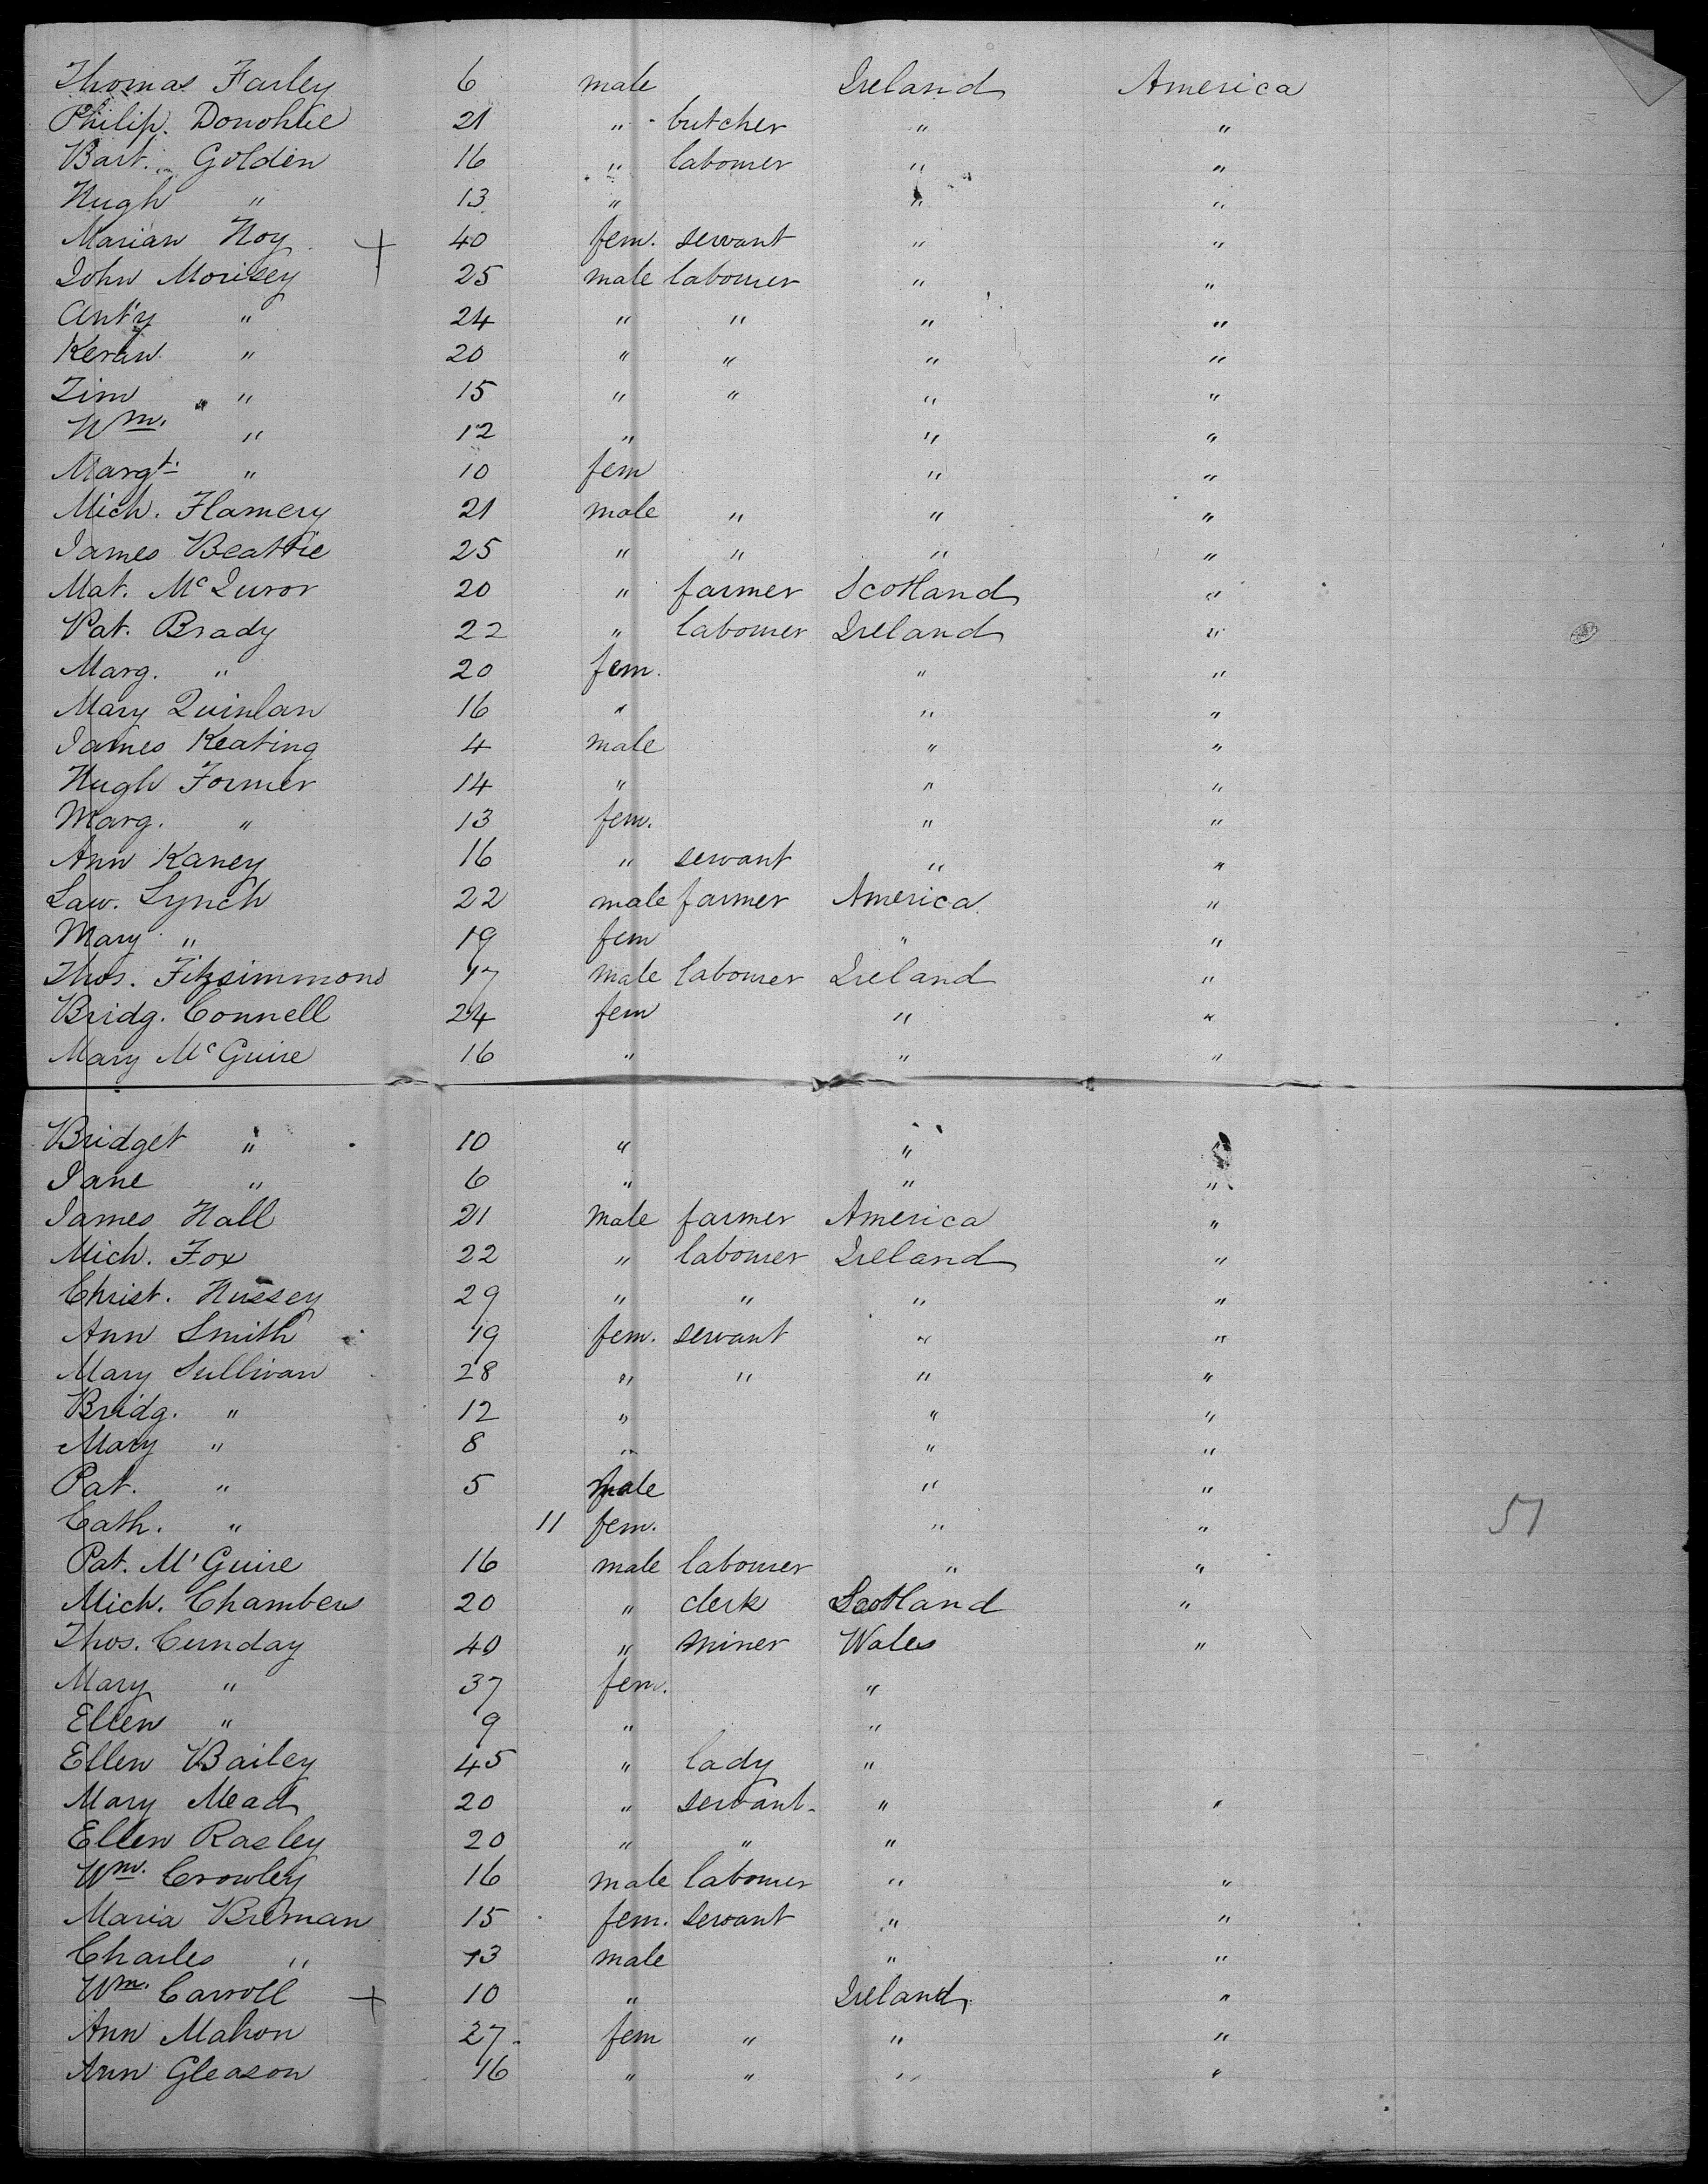 Thomas Farley 6 male Ireland America
Philip. Donohue 21 " butcher " "
Bart. Golden 16 " labourer " "
Hugh " 13 " " "
Marian Hoy + 40 fem. servant " "
John Morisey 25 male labourer " "
Ant'y " 24 " " " "
Keran " 20 " " " "
Tim " 15 " " " "
Wm. " 12 " " "
Margt. " 10 fem " "
Mich. Flamery 21 male " " "
James Beattie 25 " " " "
Mat. McJuror 20 " farmer Scotland "
Pat. Brady 22 " labourer Ireland "
Marg. " 20 fem. " "
Mary Quinlan 16 " " "
James Keating 4 male " "
Hugh Former 14 " " "
Marg. " 13 fem. " "
Ann Kaney 16 " servant " "
Law. Lynch 22 male farmer America "
Mary " 19 fem " "
Thos. Fitzsimmons 17 male labourer Ireland "
Bridg. Connell 24 fem " "
Mary McGuire 16 " " "
Bridget " 10 " " "
Jane " 6 " " "
James Hall 21 male farmer America "
Mich. Fox 22 " labourer Ireland "
Christ. Hussey 29 " " " "
Ann Smith 19 fem. servant " "
Mary Sullivan 28 " " " "
Bridg. " 12 " " "
Mary " 8 " " "
Pat. " 5 male " "
Cath. " 11 fem. " " 51
Pat. M'Guire 16 male labourer " "
Mich. Chambers 20 " clerk Scotland "
Thos. Cunday 40 " miner Wales "
Mary " 37 fem. "
Ellen " 9 " "
Ellen Bailey 45 " lady "
Mary Mead 20 " servant " "
Ellen Rasley 20 " " "
Wm. Crowley 16 male labourer " "
Maria Breman 15 fem. servant " "
Charles " 13 male " "
Wm. Carroll + 10 " Ireland "
Ann Mahon 27 fem " " "
Ann Gleason 16 " " " "